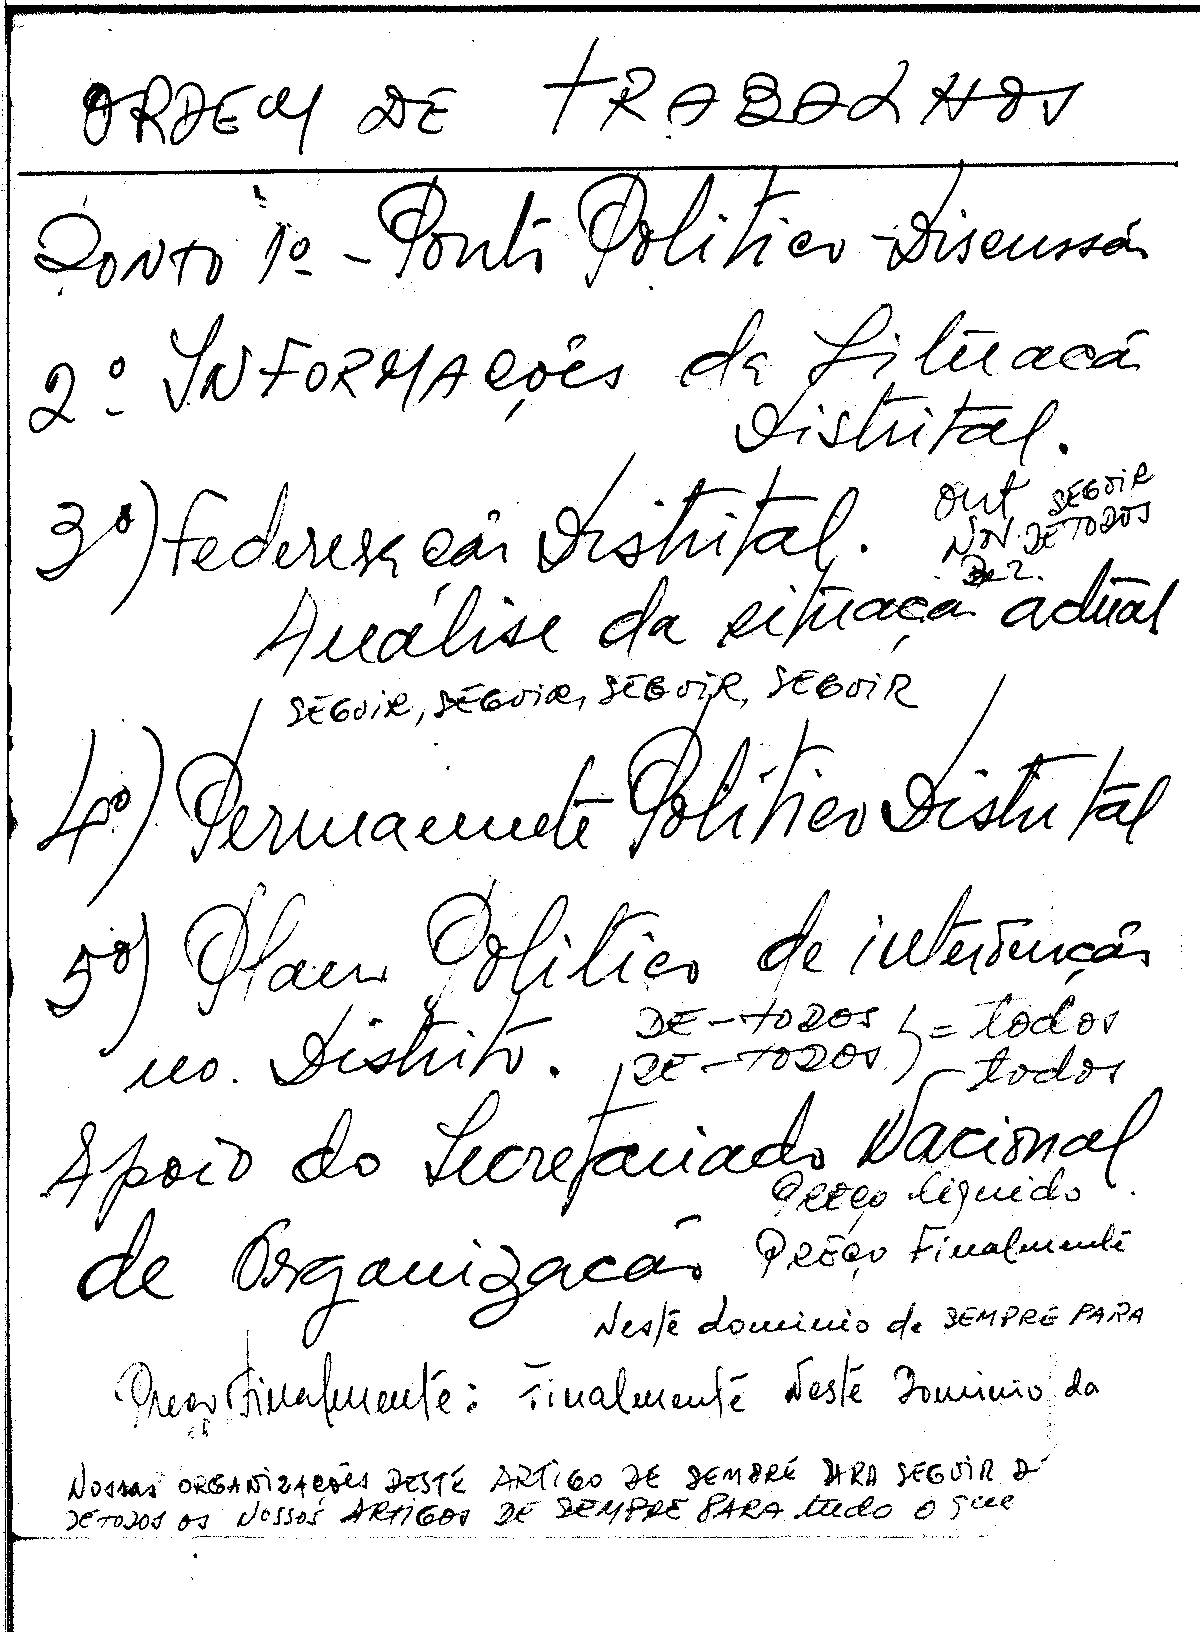 ORDEM DE TRABALHOS
PONTO 1º - Ponto Politico - Discussão
2º INFORMAções da Situacão
Distrital.
3º) Federeração Distrital.
out SEGUIR
NOV. DE TODOS
DE 2.
Análise da situação actual
SEGUIR, SEGUIR, SEGUIR, SEGUIR
4º) Permanente Politico Distrital
5º) Plano Politico de intervenção
no Distrito.
DE-TODOS } = todos
DE-TODOS } todos
Apoio do Secretariado Nacional
Preço liquido
de Organizacão
PREÇO Finalmente
Neste dominio de SEMPRE PARA
Preço Finalmente: Finalmente Neste Dominio da
NOSSAS ORGANIZAÇÕES DESTE ARTIGO DE SEMPRE PARA SEGUIR D
DE TODOS OS NOSSOS ARTIGOS DE SEMPRE PARA tudo o que